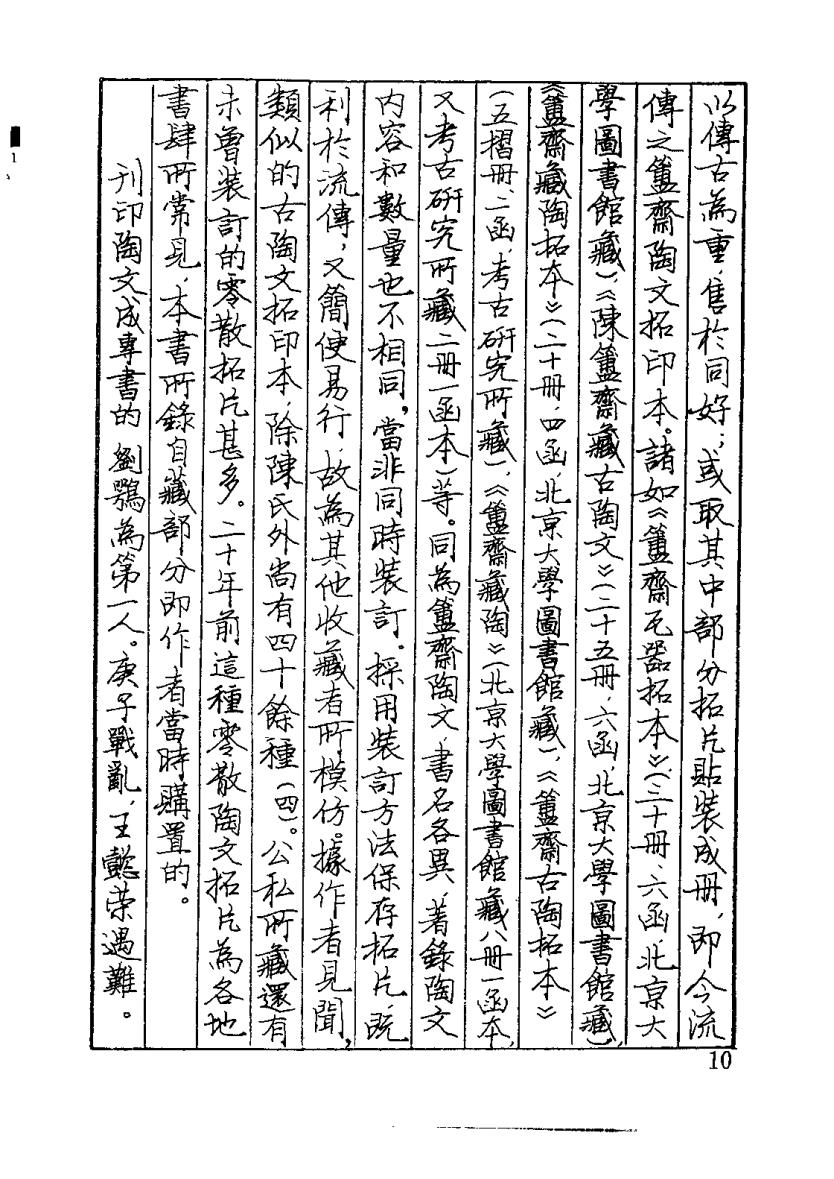 以傳古為重，售於同好；或取其中部分拓片貼裝成冊，即今流
傳之簠齋陶文拓印本。諸如《簠齋瓦器拓本》（二十冊、六函，北京大
學圖書館藏），《陳簠齋藏古陶文》（二十五冊、六函，北京大學圖書館藏），
《簠齋藏陶拓本》（二十冊、四函，北京大學圖書館藏），《簠齋古陶拓本》
（五摺冊、二函，考古研究所藏），《簠齋藏陶》（北京大學圖書館藏八冊一函本，
又考古研究所藏二冊一函本）等。同為簠齋陶文，書名各異，著錄陶文
内容和數量也不相同，當非同時裝訂。採用裝訂方法保存拓片，既
利於流傳，又簡便易行，故為其他收藏者所模仿。據作者見聞，
類似的古陶文拓印本，除陳氏外尚有四十餘種（四）。公私所藏還有
未曾裝訂的零散拓片甚多。二十年前這種零散陶文拓片為各地
書肆所常見，本書所錄自藏部分即作者當時購置的。
刊印陶文成專書的，劉鶚為第一人。庚子戰亂，王懿荣遇難。
10
1